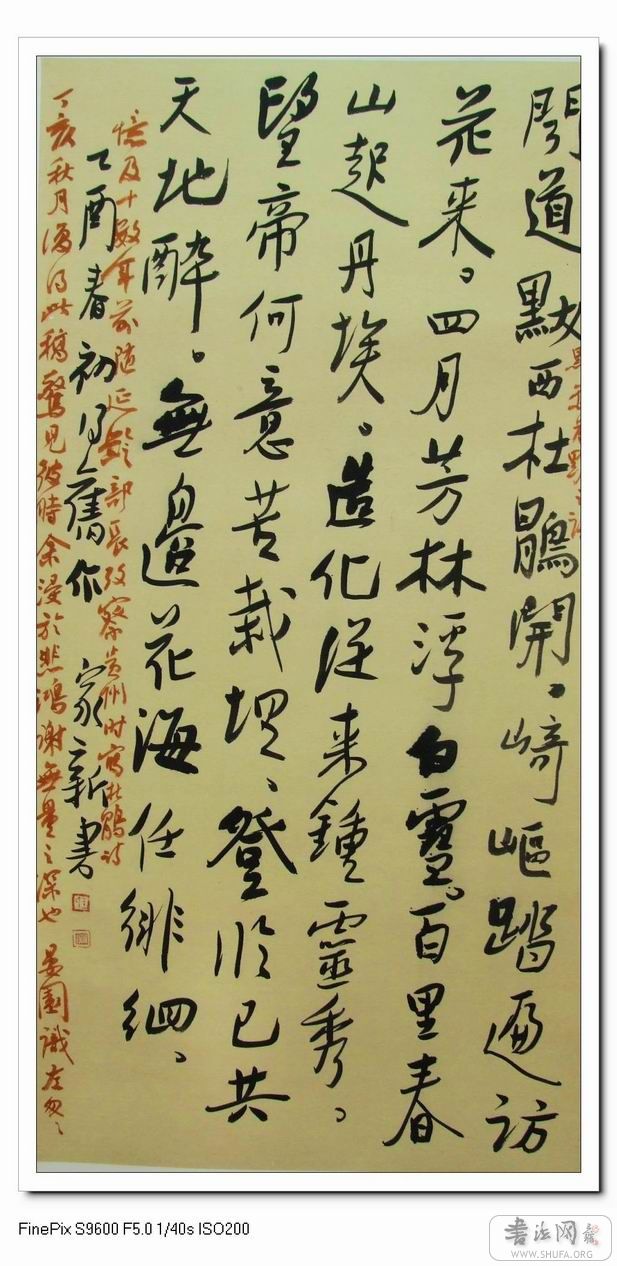 聞道黔西杜鵑開、崎嶇踏遍訪
花来。四月芳林浮白雪。百里春
山起丹埃。造化從来鍾靈秀、
望帝何意苦栽堁、登臨已共
天地醉。無邊花海任徘徊、
憶及十數年前随延齡部長攷察貴州时寫杜鵑詩
乙酉春初得舊作 家新書
丁亥秋月復得此稿驚見彼時余浸於悲鴻謝無量之深也 晏園識左
FinePix S9600 F5.0 1/40s ISO200
書法网
WWW.SHUFA.ORG